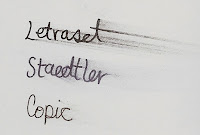 Letraset
Staedtler
Copic